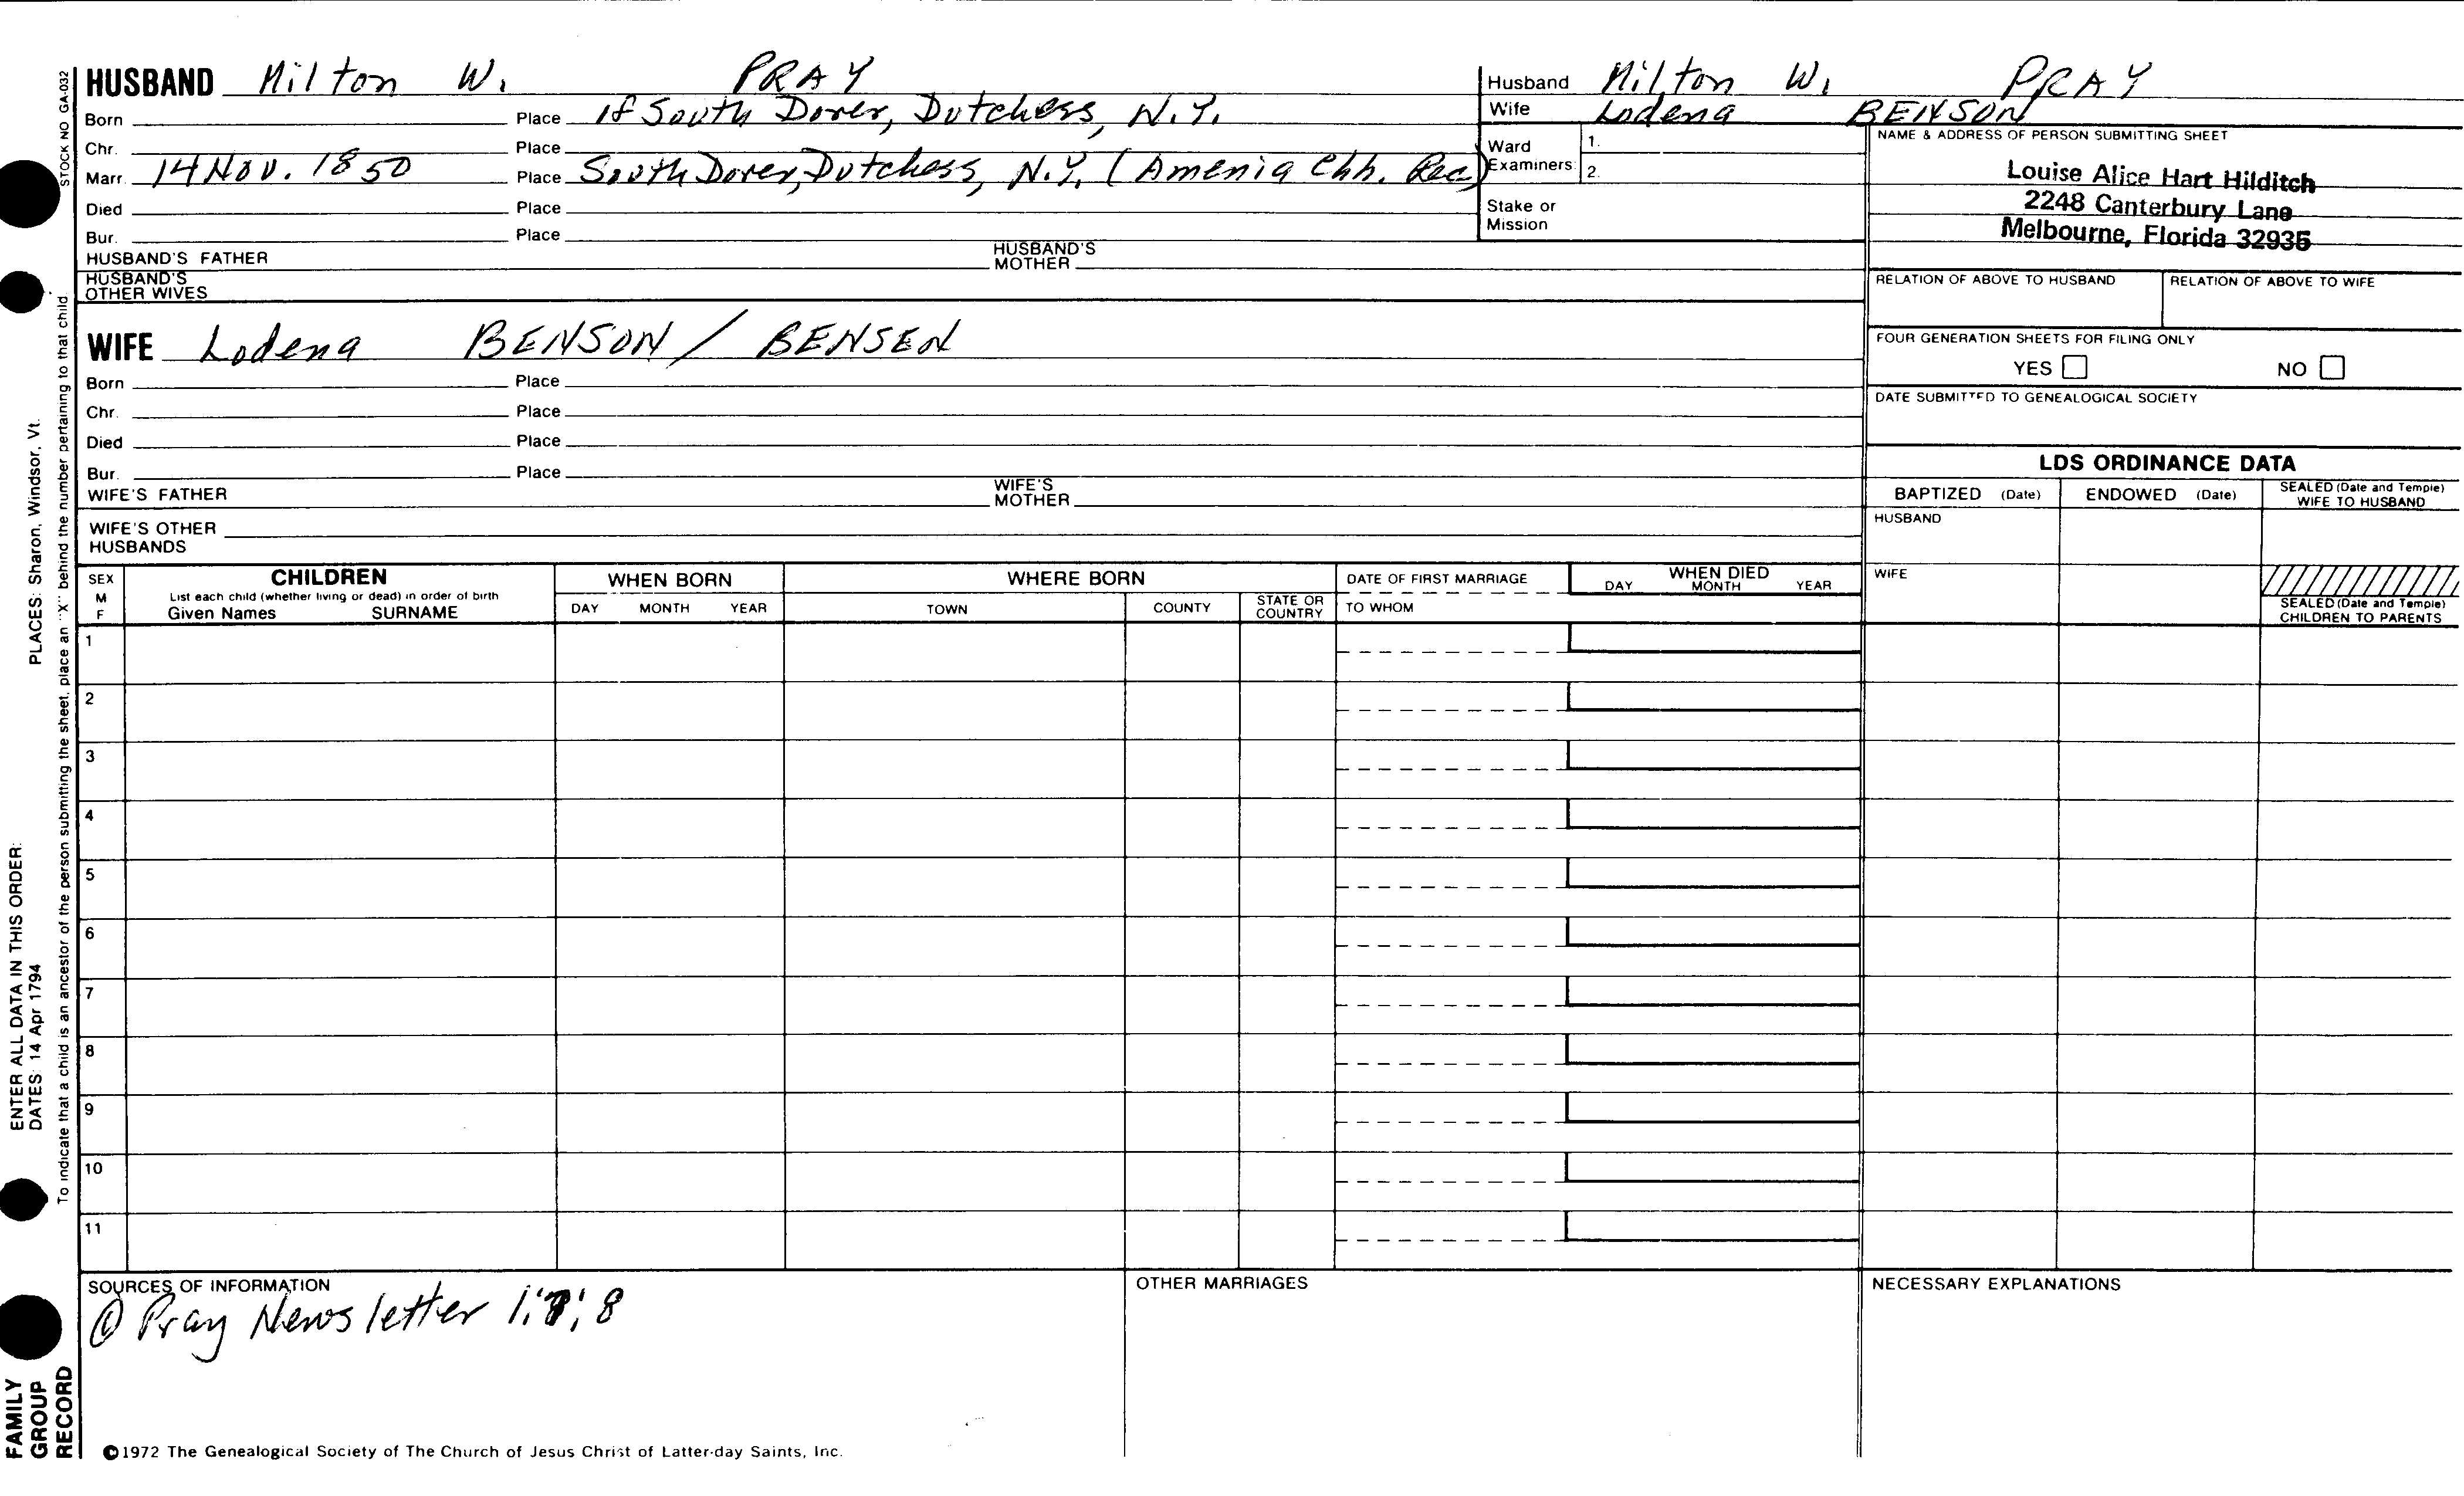 HUSBAND Milton W. PRAY
Born Place of South Dover, Dutchess, N.Y.
Chr. Place
Marr. 14 Nov. 1850 Place South Dover, Dutchess, N.Y. (Amenia Chh. Rec)
Died Place
Bur. Place
HUSBAND'S FATHER HUSBAND'S MOTHER
HUSBAND'S OTHER WIVES
WIFE Lodena BENSON / BENSEN
Born Place
Chr. Place
Died Place
Bur. Place
WIFE'S FATHER WIFE'S MOTHER
WIFE'S OTHER HUSBANDS
Husband Milton W. PRAY
Wife Lodena BENSON
Ward Examiners: 1.
2.
Stake or Mission
NAME & ADDRESS OF PERSON SUBMITTING SHEET
Louise Alice Hart Hilditch
2248 Canterbury Lane
Melbourne, Florida 32935
RELATION OF ABOVE TO HUSBAND RELATION OF ABOVE TO WIFE
FOUR GENERATION SHEETS FOR FILING ONLY
YES NO
DATE SUBMITTED TO GENEALOGICAL SOCIETY
LDS ORDINANCE DATA
BAPTIZED (Date) ENDOWED (Date) SEALED (Date and Temple) WIFE TO HUSBAND
HUSBAND
WIFE
SEALED (Date and Temple) CHILDREN TO PARENTS
SEX M F
CHILDREN
List each child (whether living or dead) in order of birth
Given Names SURNAME
WHEN BORN
DAY MONTH YEAR
WHERE BORN
TOWN COUNTY STATE OR COUNTRY
DATE OF FIRST MARRIAGE
TO WHOM
WHEN DIED
DAY MONTH YEAR
1
2
3
4
5
6
7
8
9
10
11
SOURCES OF INFORMATION
Pray Newsletter
OTHER MARRIAGES
NECESSARY EXPLANATIONS
©1972 The Genealogical Society of The Church of Jesus Christ of Latter-day Saints, Inc.
STOCK NO GA-032
To indicate that a child is an ancestor of the person submitting the sheet, place an "X" behind the number pertaining to that child.
ENTER ALL DATA IN THIS ORDER:
DATES: 14 Apr 1794 PLACES: Sharon, Windsor, Vt.
FAMILY
GROUP
RECORD